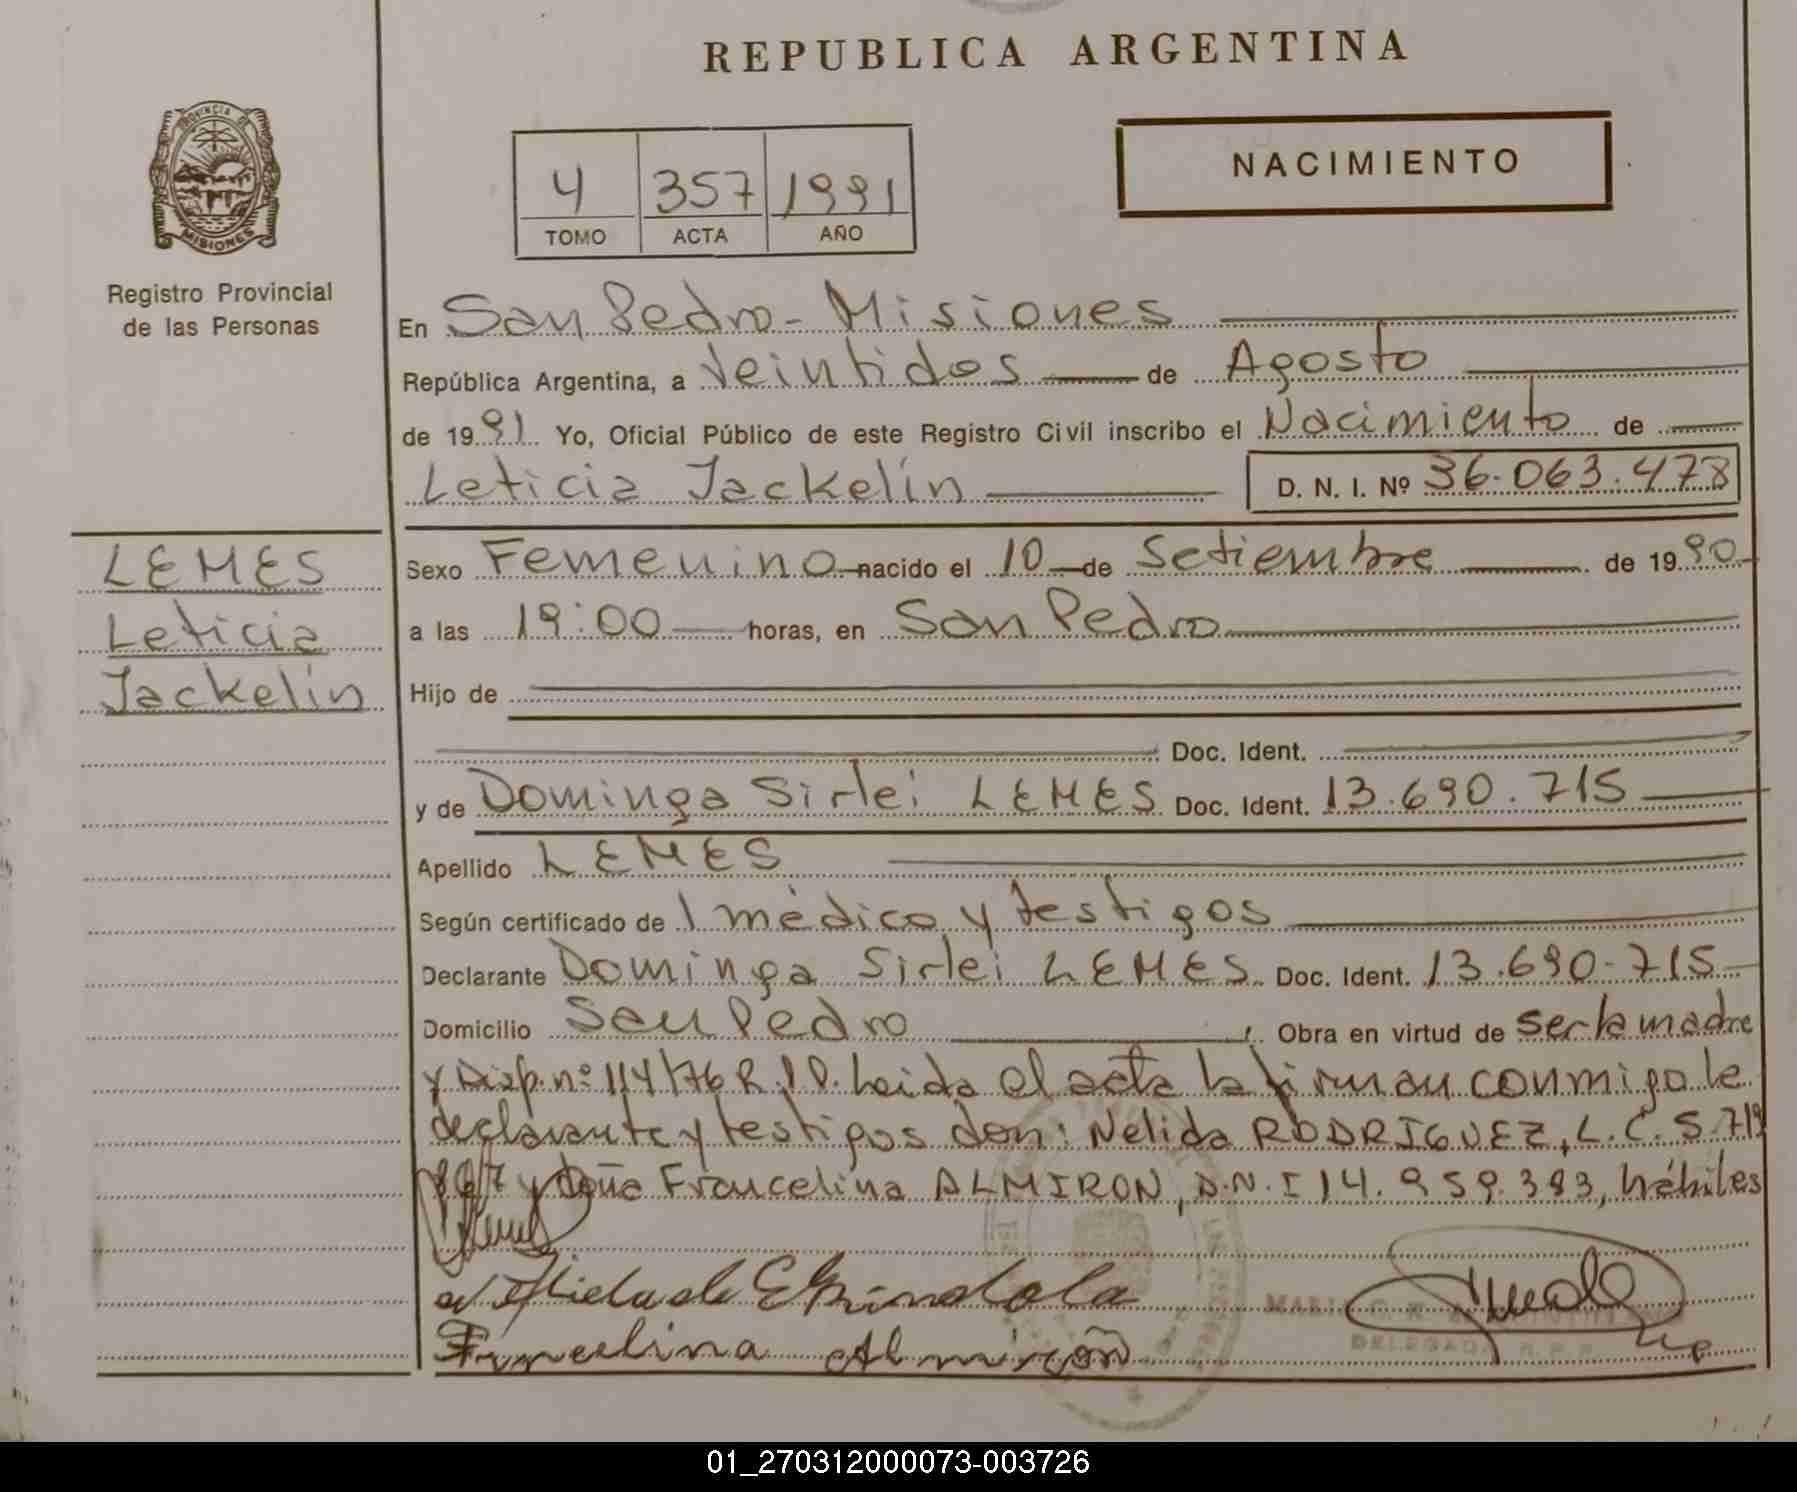 REPUBLICA ARGENTINA
PROVINCIA DE
MISIONES
Registro Provincial
de las Personas
4 357 1991
TOMO ACTA AÑO
NACIMIENTO
En San Pedro - Misiones
República Argentina, a veintidos de Agosto
de 1991 Yo, Oficial Público de este Registro Civil inscribo el Nacimiento de
Leticia Jackelín D. N. I. Nº 36.063.478
LEMES
Leticia
Jackelín
Sexo Femenino nacido el 10 de Setiembre de 1990
a las 19:00 horas, en San Pedro
Hijo de
Doc. Ident.
y de Dominga Sirlei LEMES Doc. Ident. 13.690.715
Apellido LEMES
Según certificado de 1 médico y testigos
Declarante Dominga Sirlei LEMES Doc. Ident. 13.690.715
Domicilio San Pedro Obra en virtud de ser la madre
y Disp. nº 114/76 R.P.P. Leida el acta la firman conmigo la
declarante y testigos don: Nelida RODRIGUEZ, L.C. 5.719
867 y doña Francelina ALMIRON, D.N.I 14.959.393, hábiles
de Espindola
Francelina Almirón
DELEGADA R.P.P.
01_270312000073-003726